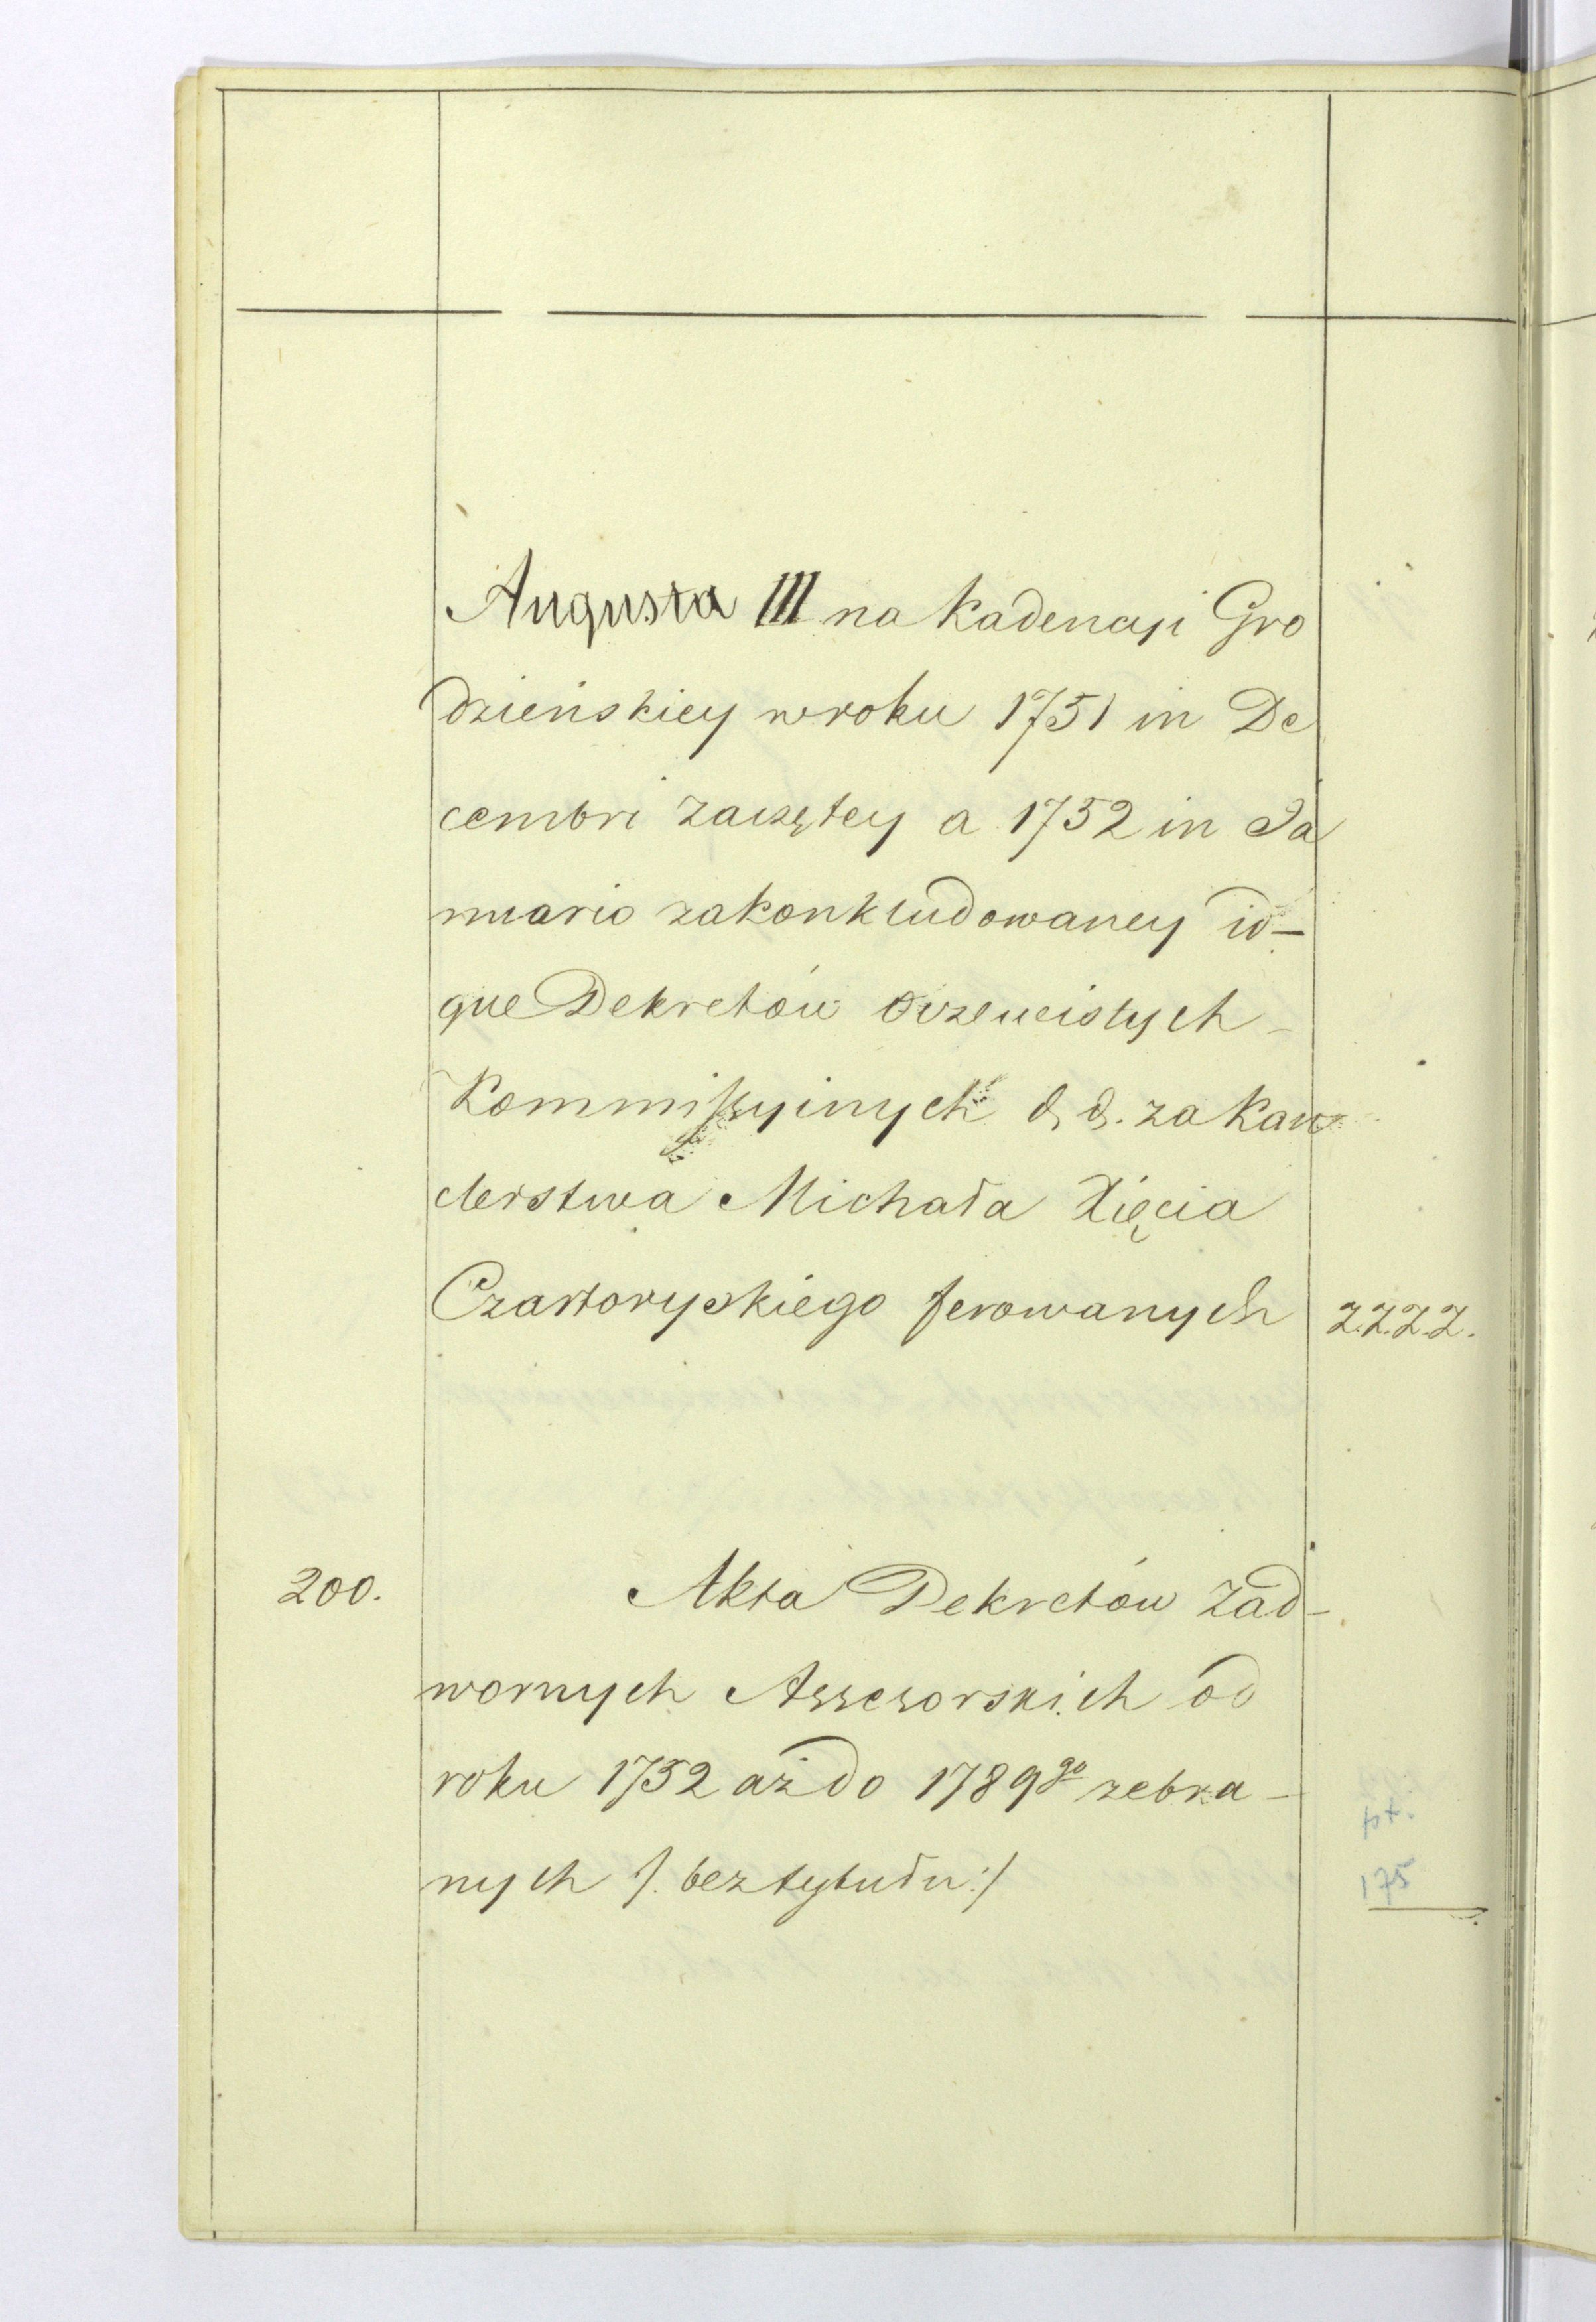 Augusta III na Kadencyi Gro
dzieńskiey w roku 1751 in De
cembri zaczętey a 1752 in Ja
nuario zakonkludowaney id-
que Dekretów oczewistych
Kommissyinych &. &. za Kan
clerstwa Michała Xięcia
Czartoryskiego ferowanych Z.Z.Z.Z.
200. Akta Dekretów Zad-
wornych Assesorskich od
roku 1752 aż do 1789go zebra-
nych /. bez tytułu :/
175